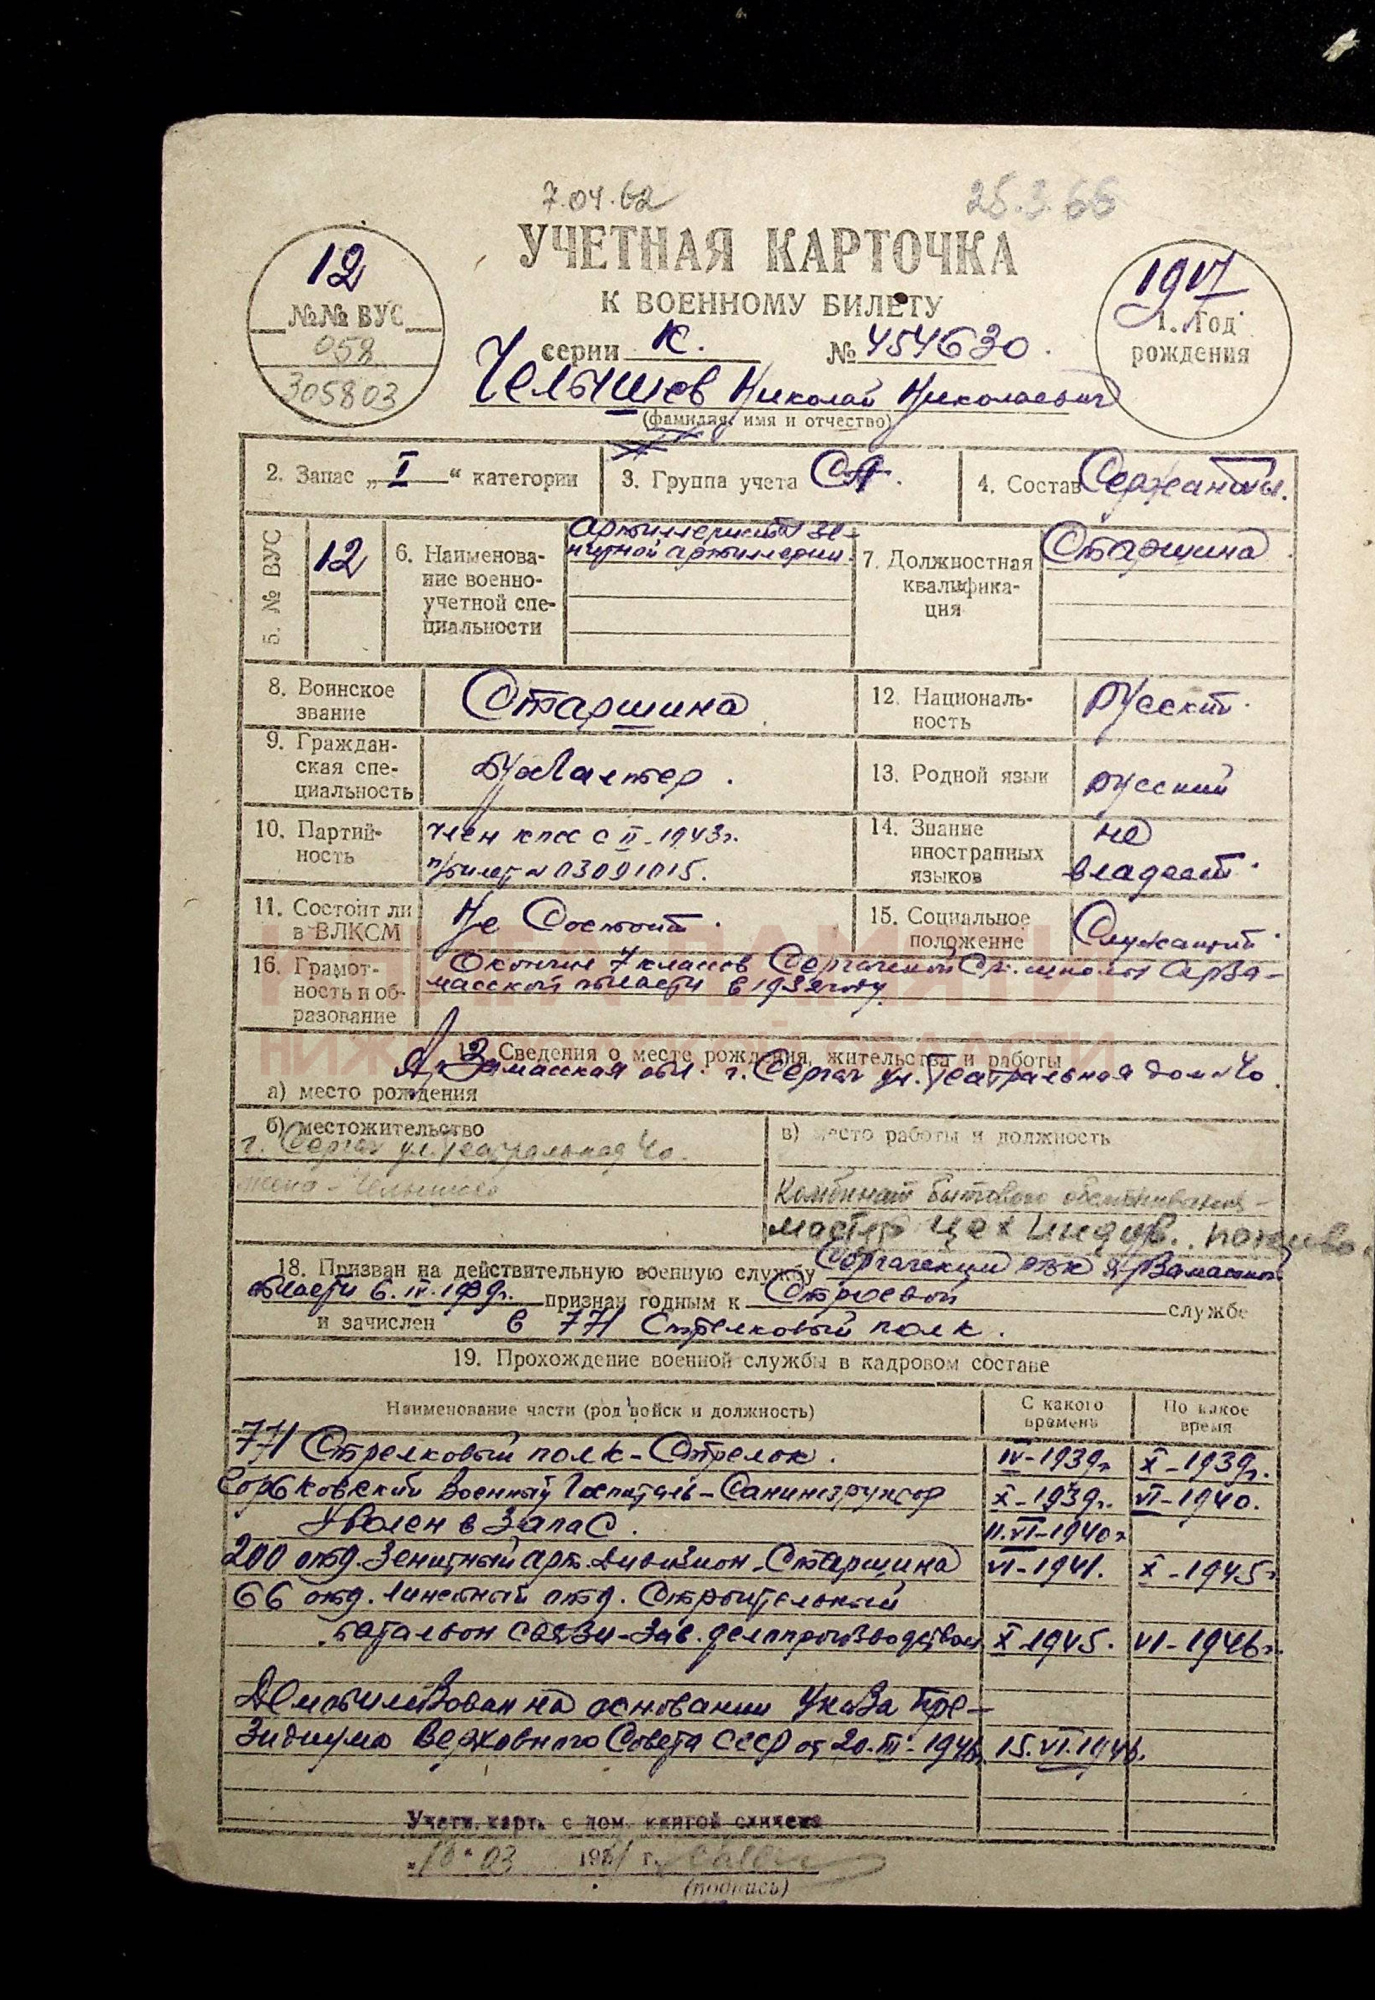 7.04.62
25.3.66
УЧЕТНАЯ КАРТОЧКА
К ВОЕННОМУ БИЛЕТУ
12
№№ ВУС
058
305803
1917
1. Год
рождения
серии К. № 454630.
Челышев Николай Николаевич
(фамилия, имя и отчество)
2. Запас „I“ категории
3. Группа учета СА.
4. Состав Сержанты.
5. № ВУС
12
6. Наименова-
ние военно-
учетной спе-
циальности
Артиллеристы зе-
нитной артиллерии.
7. Должностная
квалифика-
ция
Старшина.
8. Воинское
звание
Старшина
12. Националь-
ность
Русский.
9. Граждан-
ская спе-
циальность
Бухгалтер.
13. Родной язык
русский
10. Партий-
ность
член кпсс с II-1943г.
п/билет № 03091015.
14. Знание
иностранных
языков
не
владеет.
11. Состоит ли
в ВЛКСМ
Не Состоит.
15. Социальное
положение
Служащий.
16. Грамот-
ность и об-
разование
Окончил 7 классов Сергачской Ср. школы Арза-
масской области в 1932 году
КНИГА ПАМЯТИ
НИЖЕГОРОДСКОЙ ОБЛАСТИ
17. Сведения о месте рождения, жительства и работы
Арзамасская обл. г. Сергач ул. Театральная дом № 40.
а) место рождения
б) местожительство
г. Сергач ул. Театральная 40.
жена - Челышева
в) место работы и должность
Комбинат бытового обслуживания -
мастер цех индив. пошива.
18. Призван на действительную военную службу Сергачским РВК Арзамасской
области 6.IV.1939г. признан годным к Строевой службе
и зачислен в 771 Стрелковый полк.
19. Прохождение военной службы в кадровом составе
Наименование части (род войск и должность)
С какого
времени
По какое
время
771 Стрелковый полк - Стрелок. IV-1939г. X-1939г.
Горьковский Военный Госпиталь - Санинструктор X-1939г. VI-1940.
Уволен в Запас. 11.VI-1940г.
200 отд. Зенитный арт. Дивизион - Старшина VI-1941. X-1945г.
66 отд. линейный отд. Строительный
батальон связи - Зав. делопроизводством X-1945. VI-1946г.
Демобилизован на основании Указа Пре-
зидиума Верховного Совета СССР от 20.III-1946г. 15.VI.1946.
Учетн. карт. с дом. книгой сличена
„10“ 03 г.
(подпись)